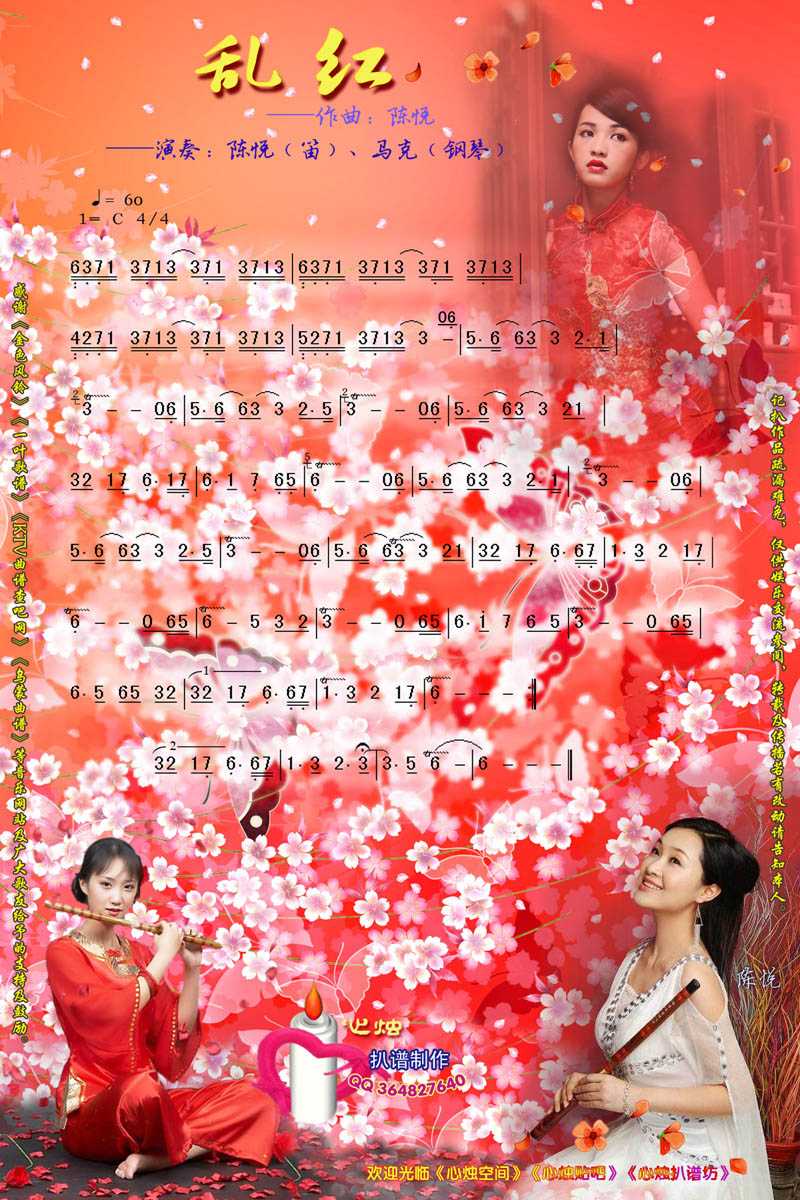 乱红
——作曲：陈悦
——演奏：陈悦（笛）、马克（钢琴）
♩= 60
1= C 4/4
6371 3713 371 3713|6371 3713 371 3713|
4271 3713 371 3713|5271 3713 3 - 06|5· 6 63 3 2·1|
2 3 - - 06|5· 6 63 3 2·5|2 3 - - 06|5· 6 63 3 21|
32 17 6·17|6· 1 7 65|5 6 - - 06|5· 6 63 3 2·1|2 3 - - 06|
5· 6 63 3 2·5|3 - - 06|5· 6 63 3 21|32 17 6·67|1·3 2 17|
6 - - 0 65|6 - 5 32|3 - - 065|6· i 7 65|3 - - 065|
6· 5 65 32|1 32 17 6·67|1·3 2 17|6 - - -‖
2 32 17 6·67|1·3 2·3|3·5 6 -|6 - - -‖
感谢《金色风铃》《一叶歌谱》《KTV曲谱查吧网》《乌蒙曲谱》等音乐网站及广大歌友给予的支持及鼓励。
记扒作品疏漏难免，仅供娱乐交流参阅，转载及传播若有改动请告知本人
陈悦
心烛
扒谱制作
QQ 364827640
欢迎光临《心烛空间》《心烛贴吧》《心烛扒谱坊》